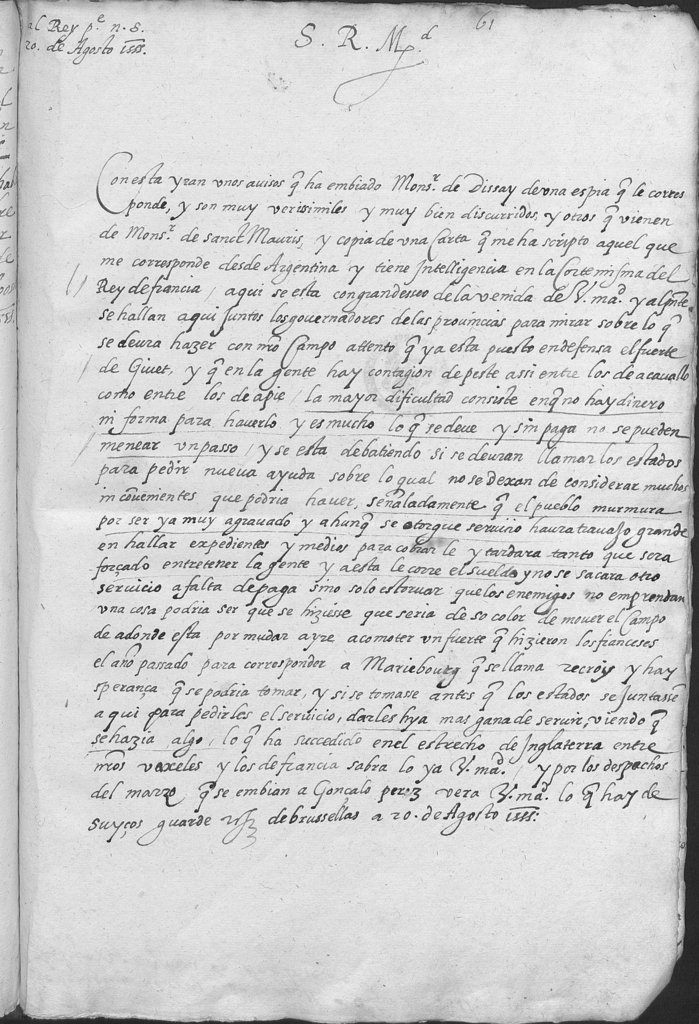 al Rey pe. n. s.
20. de Agosto 1555.
61
S. R. M.d
Con esta yran unos avisos q̃ ha embiado Monsr. de Dissay de una espia q̃ le corres
ponde, y son muy verisimiles y muy bien discurridos, y otros q̃ vienen
de Monsr. de sanct Mauris, y copia de una Carta q̃ me ha scripto aquel que
me corresponde desde Argentina y tiene Intelligencia en la Corte misma del
Rey de francia / aqui se esta con grandesseo de la venida de V. mad. y al pnte
se hallan aqui Juntos los governadores de las provincias para mirar sobre lo q̃
se devra hazer con nr̃o Campo attento q̃ ya esta puesto en defensa el fuerte
de Givet, y q̃ en la gente hay contagion de peste assi entre los de a cavallo
como entre los de a pie / la mayor dificultad consiste en q̃ no hay dinero
ni forma para haverlo y es mucho lo q̃ se deve y sin paga no se pueden
menear un passo / y se esta debatiendo si se devran llamar los estados
para pedir nueva ayuda sobre lo qual no se dexan de considerar muchos
incõvenientes que podria haver, señaladamente q̃ el pueblo murmura
por ser ya muy agravado y ahunq̃ se otorgue servicio havra travajo grande
en hallar expedientes y medios para cobrarle y tardara tanto que sera
forçado entretener la gente y a esta le corre el sueldo y no se sacara otro
servicio a falta de paga sino solo estorvar que los enemigos no emprendan
una cosa podria ser que se hiziesse que seria de so color de mover el Campo
de adonde esta por mudar ayre acometer un fuerte q̃ hizieron los franceses
el año passado para corresponder a Mariebourg q̃ se llama recroy y hay
sperança q̃ se podria tomar, y si se tomasse antes q̃ los estados se juntassẽ
aqui para pedirles el servicio, darles hya mas gana de servir, viendo q̃
se hazia algo / lo q̃ ha succedido en el estrecho de Inglaterra entre
nr̃os vaxeles y los de francia sabra lo ya V. mad. / y por los despachos
del marzo q̃ se embian a Gonçalo perez vera V. mad. lo q̃ hay de
Suyços guarde de brussellas a 20. de Agosto 1555.